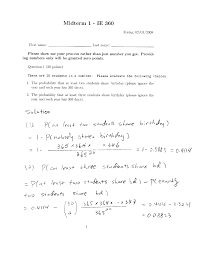 Midterm 1 - IE 360
Friday, 03/03/2006
First name: Last name:
Please show me your process rather than just number you get. Providing numbers only will be granted zero points.
Question 1 (20 points)
There are 20 students in a contest. Please evaluate the following chances.
1. The probability that at least two students share birthday (please ignore the
day and each year has 365 days)
2. The probability that at least three students share birthday (please ignore the
day and each year has 365 days)
Solution
(1) P(at least two students share birthday)
= 1 - P(nobody share birthday)
= 1 -
= 1 - 0.5885 = 0.4114
(2) P(at least three students share bd)
= P(at least two students share bd) - P(exactly
two students share bd)
= 0.4114 -
= 0.4114 -